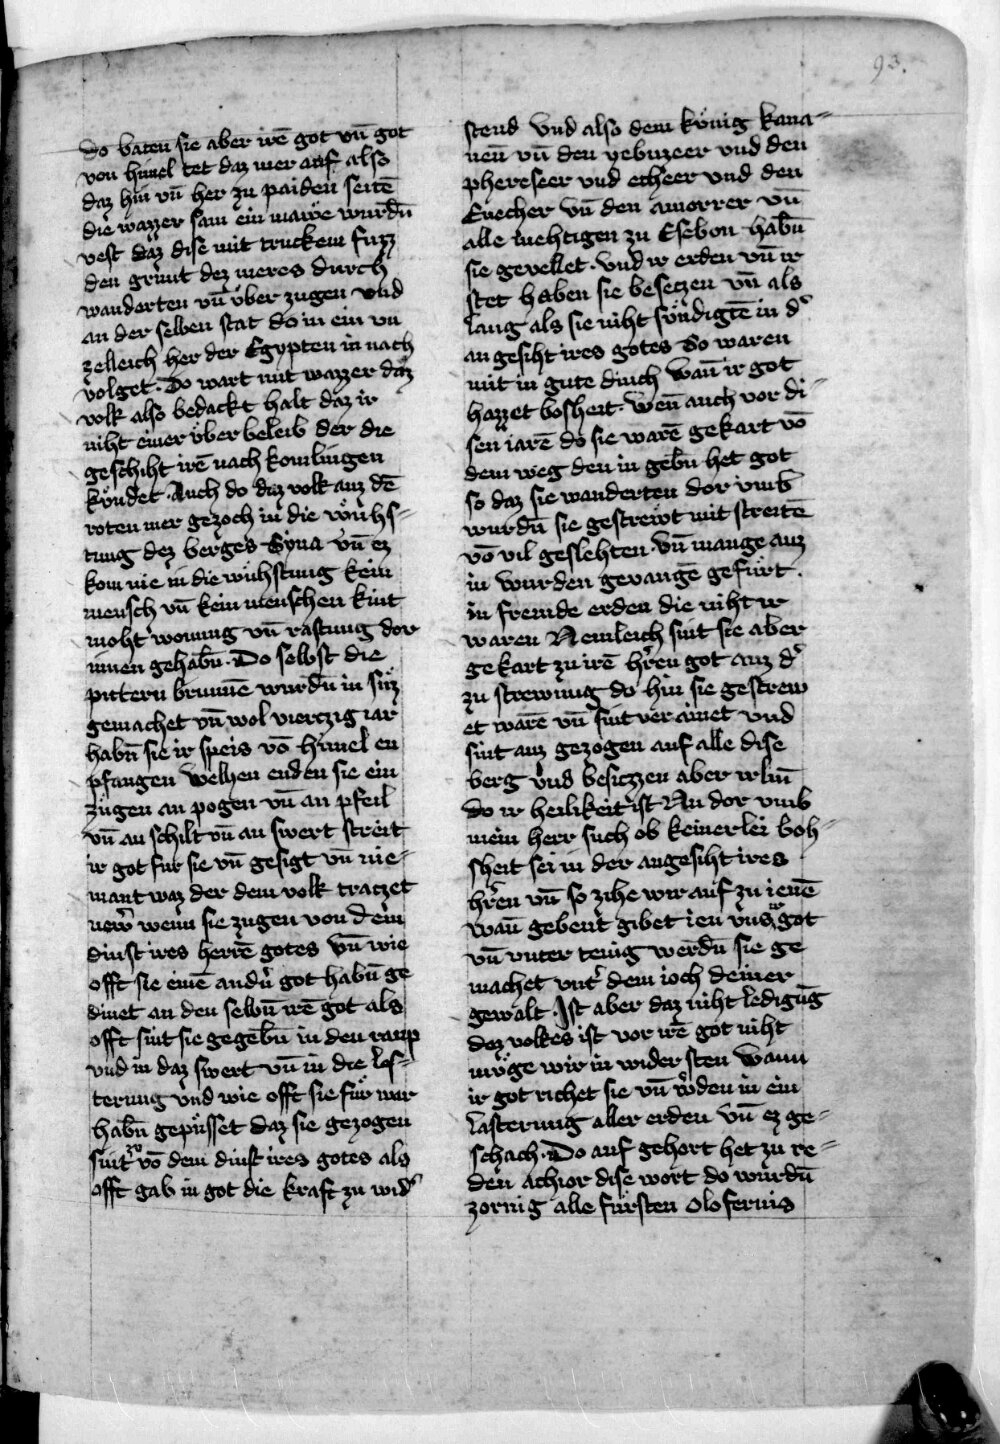 93.
do baten sie aber irē got vn̄ got
von himel tet daz mer auf also
daz hin vn̄ her zu paiden seitē
die wazzer sam ein mawͤe wurdn̄
vest daz dise mit truckem fuzz
den grunt dez meres durch
wanderten vn̄ vͤber zugen vnd
an der selben stat do in ein vn
zelleich her der Egypten in nach
volget. Do wart mit wazzer daz
volk also bedackt halt daz ir
niht einer vͤber beleib der die
geschiht irē nach komlingen
kuͤndet. Auch do daz volk auz dē
roten mer gezoch in die wuͤhs-
tung dez berges Syna vn̄ ez
kom nie in die wuͤhstung kein
mensch vn̄ kein menschen kint
moht wonung vn̄ rastung dor
innen gehabn̄. Do selbst die
pittern brunnē wurdn̄ in suͤz
gemachet vn̄ wol vierczig iar
habn̄ sie ir speis vō himel en
pfangen Welhen enden sie ein
zugen an pogen vn̄ an pfeil
vn̄ an schilt vn̄ an swert streit
ir got fur sie vn̄ gesigt vn̄ nie-
mant waz der dem volk tratzet
newr̄ wenn sie zugen von dem
dinst ires herrē gotes Vn̄ wie
offt sie einē andn̄ got habn̄ ge
dinet an den selbn̄ irē got als
offt sint sie gegebn̄ in den raup
vnd in daz swert vn̄ in die les-
terung Vnd wie offt sie fuͤr war
habn̄ gepuͤsset daz sie gezogen
sint vō dem dinst ires gotes als
offt gab in got die kraft zu wid̕
stend Vnd also dem kuͤnig kana-
neu vn̄ den yebuzeer vnd den
phereseer vnd etheer vnd den
Euecher vn̄ den amorrer vn̄
alle mehtigen zu Esebon habn̄
sie gevellet. vnd ir erden vn̄ ir
stet haben sie besetzen vn̄ als
lang als sie niht suͤndigtē in d̕
angesiht ires gotes So waren
mit in gute dinch Wan̄ ir got
hazzet bosheit. Wen̄ auch vor di-
sen iarē do sie warē gekart vō
dem weg den in gebn̄ het got
so daz sie wanderten dor vmb
wurdn̄ sie gestrewt mit streitē
vō vil geslehten. vn̄ mange auz
in wurden gevangē gefuͤrt.
in fremde erden die niht ir
waren Nemleich sint sie aber
gekart zu irē hr̄en got auz d̕
zu strewung do hin sie gestrew
et warē vn̄ sint ver ainet vnd
sint auz gezogen auf alle dise
berg vnd besiczzen aber irlm̄
do ir heilikeit ist Nu dor vmb
mein herr such ob keinerlei boh-
sheit sei in der angesiht ires
hr̄en vn̄ so zihe wir auf zu ienē
wan̄ gebent gibet ien vns̕ got
vn̄ vnter tenig werdn̄ sie ge
machet vnt̕ dem ioch deiner
gewalt. Ist aber daz niht ledigūg
dez volkes ist vor irē got niht
muͤge wir in wider sten Wann
ir got richet sie vn̄ w̕den in ein
lasterung aller erden Vn̄ ez ge-
schach. Do auf gehort het zu re-
den achior dise wort do wurdn̄
zornig alle fursten olofernis